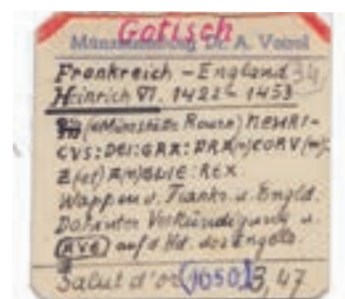 Gotisch
Münzsammlung Dr. A. Voirol
Frankreich - England 34
Heinrich VI. 1422 - 1453
(Münzstätte Rouen) HENRI-
CVS: DEI: GRA: FRA(n)CORV(m):
Z(et) A(n)GLIE: REX
Wappen v. Frankr. u. Engld.
Darunter Verkündigung u.
AVE auf d. Bd. des Engels
Salut d'or 1050 3,47